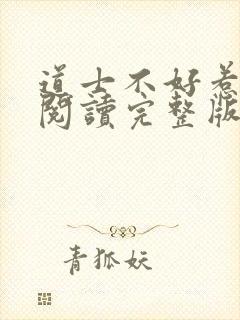 道士不好惹
閱讀完整版
青狐妖